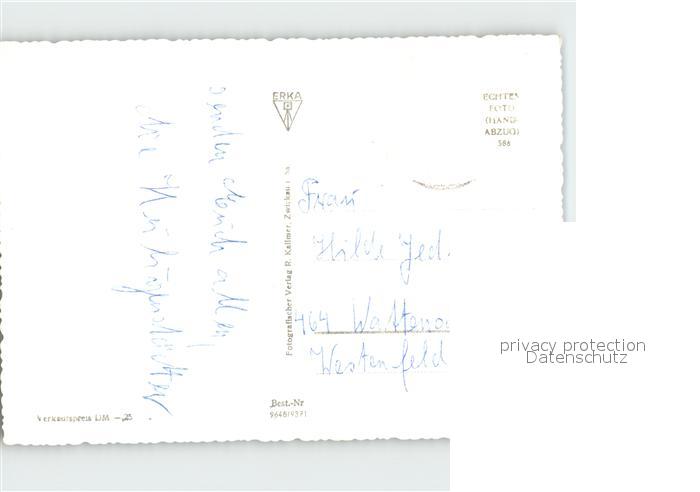 senden Euch allen
die
ERKA
ECHTES
FOTO
(HAND-
ABZUG)
586
Fotografischer Verlag R. Kallmer, Zwickau i. Sa
Frau
Hilde Jed.
464 Watten
Westenfeld
privacy protection
Datenschutz
Verkaufspreis DM -.25
Best.-Nr
9648/9371